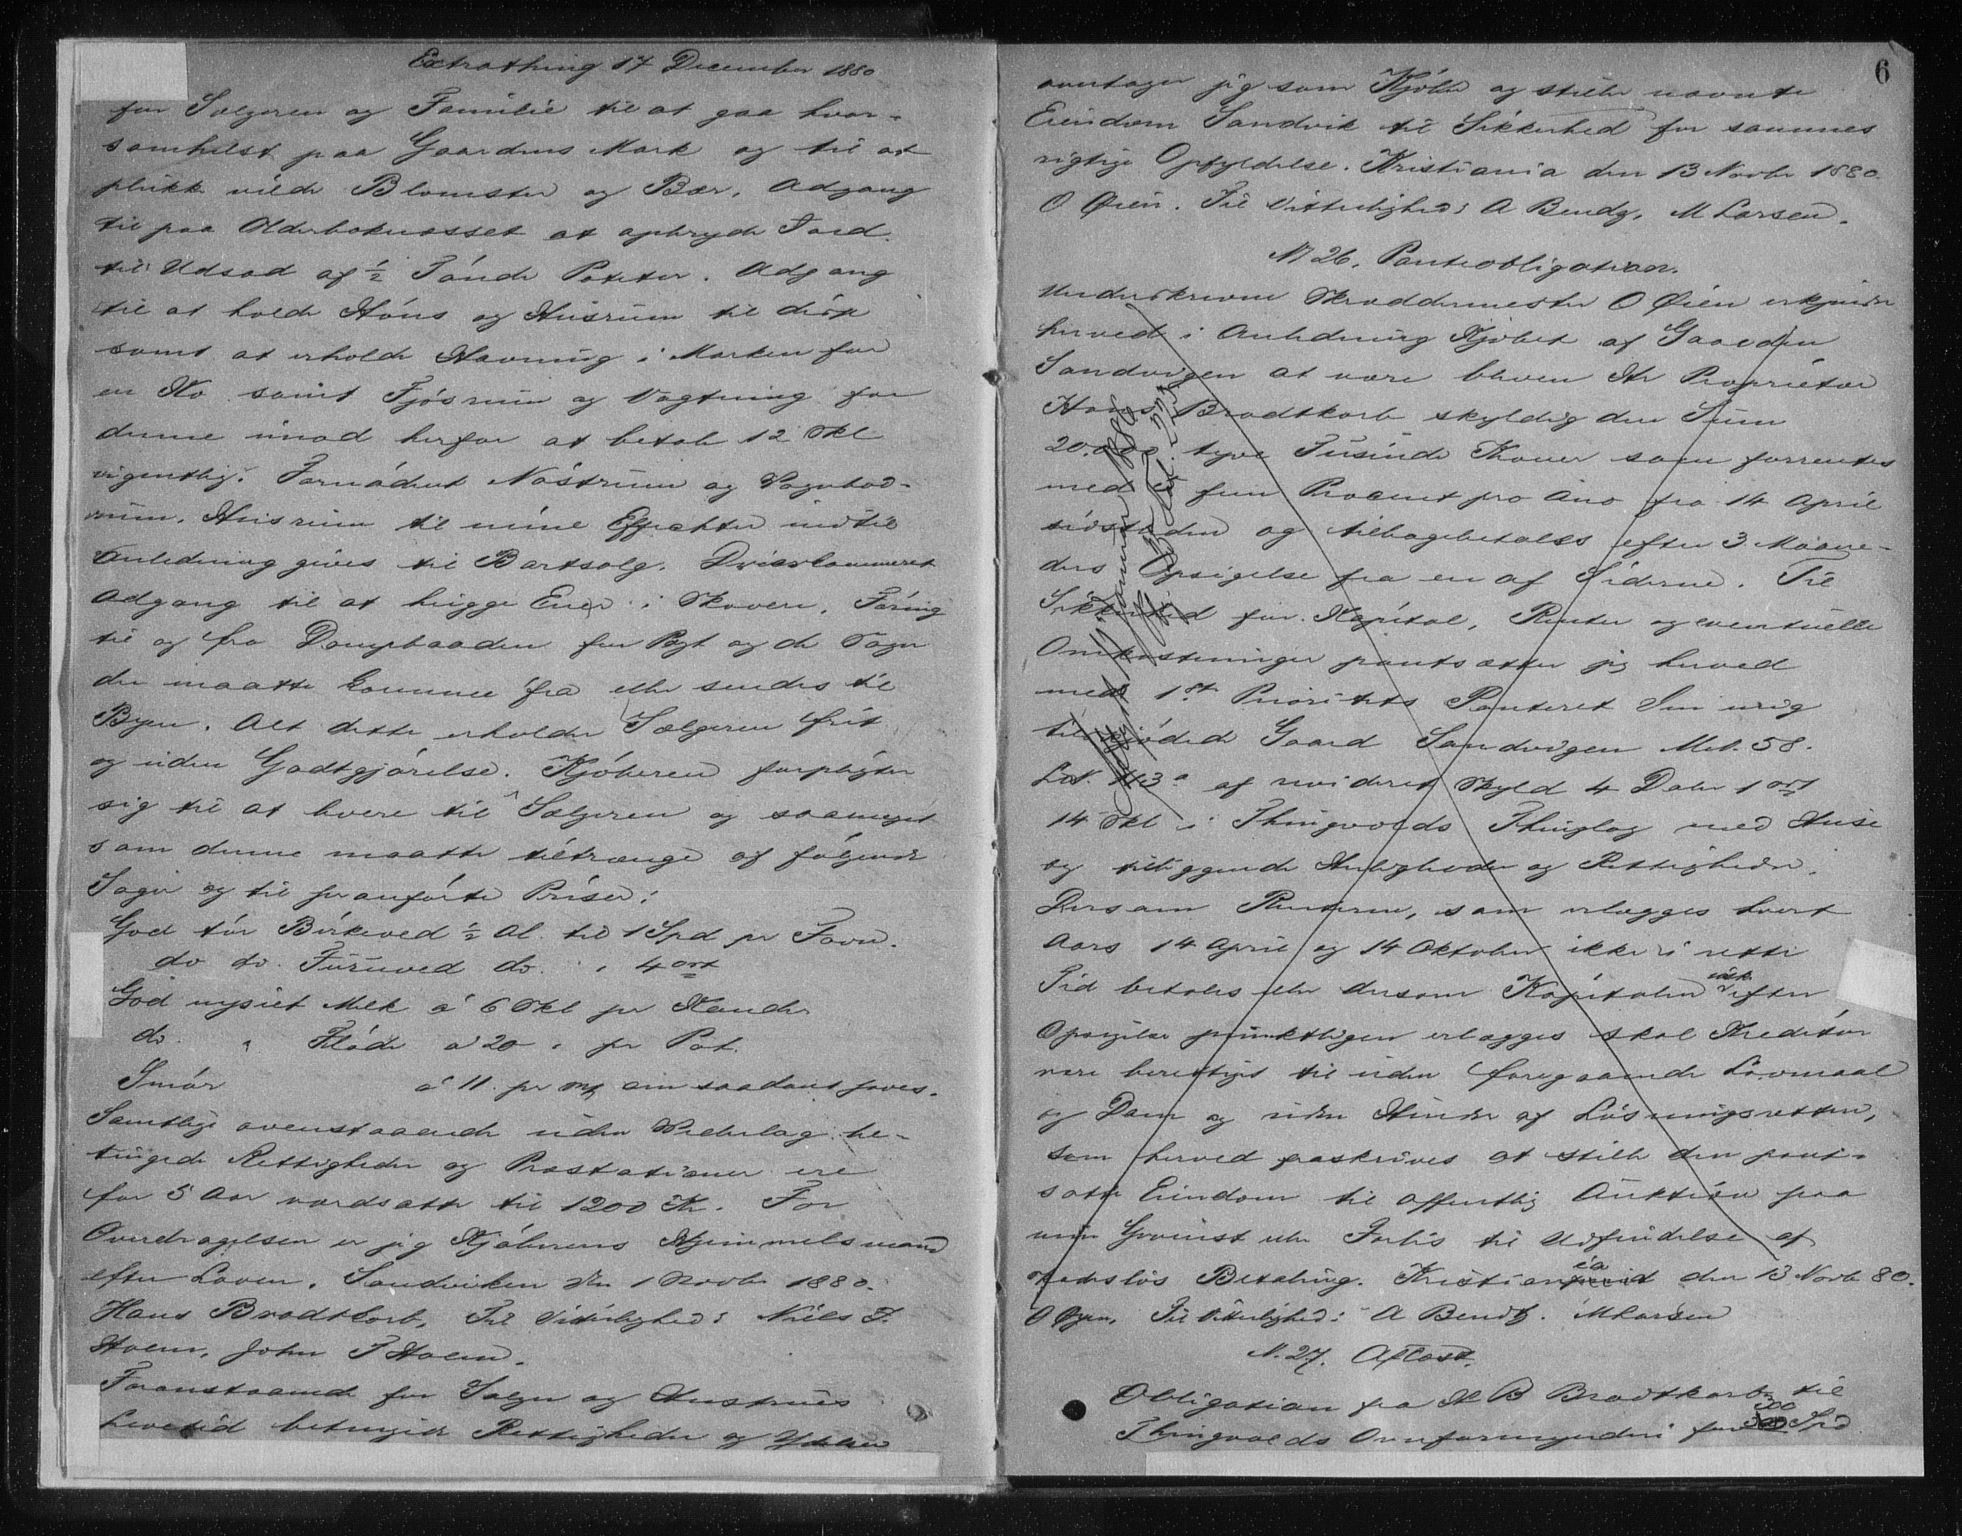 Extrathing 17 December 1880
for Sælgeren og Familie til at gaa hvor-
somhelst paa Gaardens Mark og til at
plukke vilde Blomster og Bær. Adgang
til paa Olderbaknæsset at opbryde Jord
til Udsæd af ½ Tønde Poteter. Adgang
til at holde Høns og Husrum til disse
samt at erholde Havning i Marken for
en Ko samt Fjøsrum og Vogtning for
denne imod herfor at betale 12 Skl
ugentlig. Fornødent Nøstrum og Vognbod-
rum. Husrum til mine Effekter indtil
Anledning gives til Bortsalg.
Adgang til at hugge Ener i Skoven. Føring
til og fra Dampbaaden for Bgt og de Sager
der maatte komme fra eller sendes til
Byen. Alt dette erholder Sælgeren frit
og uden Godtgjørelse. Kjøberen forpligter
sig til at levere til Sælgeren og saameget
som denne maatte tiltrænge af følgende
Sager og til hranførte Priser:
God tør Birkeved ½ Al. til 1 Spd pr Favn.
do do. Furuved do. " 4 ort
God nysiet Melk á 6 Skl pr Kande
do. " Fløde á 20 " pr Pot.
Smør á 11. pr Mk om saadant haves.
Samtlige ovenstaaende uden Vederlag be-
tingede Rettigheder og Præstationer ere
for 5 Aar værdsatte til 1200 Kr. For
Overdragelsen er jeg Kjøberens Hjemmelsmand
efter Loven. Sandviken den 1 Novbr 1880.
Hans Brodtkorb. Til Vitterlighed: Niels J.
Holm, John J Holm.
Foranstaaende for Sælger og Hustrues
Levetid betingede Rettigheder og Ydelser
6
overtager jeg som Kjøber og stiller nævnte
Eiendom Sandvik til Sikkerhed for sammes
rigtige Opfyldelse. Kristiania den 13 Novbr 1880.
O Øien. Til Vitterlighed: A Bendz, M Larsen.
N 26. Panteobligation.
Underskrevne Skræddermester O Øien erkjender
herved i Anledning Kjøbet af Gaarden
Sandvigen at være bleven Hr Proprietær
Hans Brodtkorb skyldig den Sum
20.000 tyve Tusinde Kroner som forrentes
med 5 fem Procent pro Anno fra 14 April
sidstleden og tilbagebetales efter 3 Maane-
ders Opsigelse fra en af Siderne. Til
Sikkerhed for Kapital, Renter og eventuelle
Omkostninger pantsætter jeg herved
med 1ste Prioritets Panteret den mig
tilskjødede Gaard Sandvigen Mat. 58.
LNr. 113a af revideret Skyld 4 Daler 1 ort
14 Skl i Thingvolds Thinglag med Huse
og tilliggende Herligheder og Rettigheder.
Dersom Renterne, som erlægges hvert
Aars 14 April og 14 Oktober ikke i rette
Tid betales eller dersom Kapitalen ikke efter
Opsigelse punktligen erlægges skal Kreditor
være berettiget til uden foregaaende Lovmaal
og Dom og uden Hinder af Løsningsretten,
som herved fraskrives at stille den pant-
satte Eiendom til offentlig Auktion paa
min Gevinst eller Forlis til Udfindelse af
skadesløs Betaling. Kristiania den 13 Novb 80.
O Øyen. Til Vitterlighed: A Bendz. M Larsen
N. 27. Aflæst.
Obligation fra H B Brodtkorb til
Thingvolds Overformynderi for 300 Spd